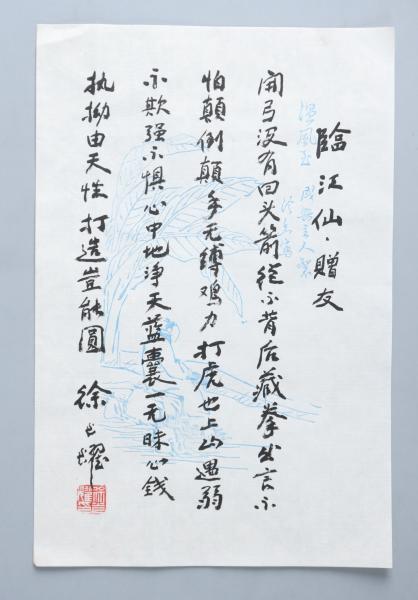 臨江仙·赠友
開弓没有回头箭從不背后藏拳出言不
怕顛倒顛手无縛鸡力打虎也上山遇弱
不欺强不惧心中地淨天蓝囊一无昧心钱
执拗由天性打造豈能圆
徐光耀